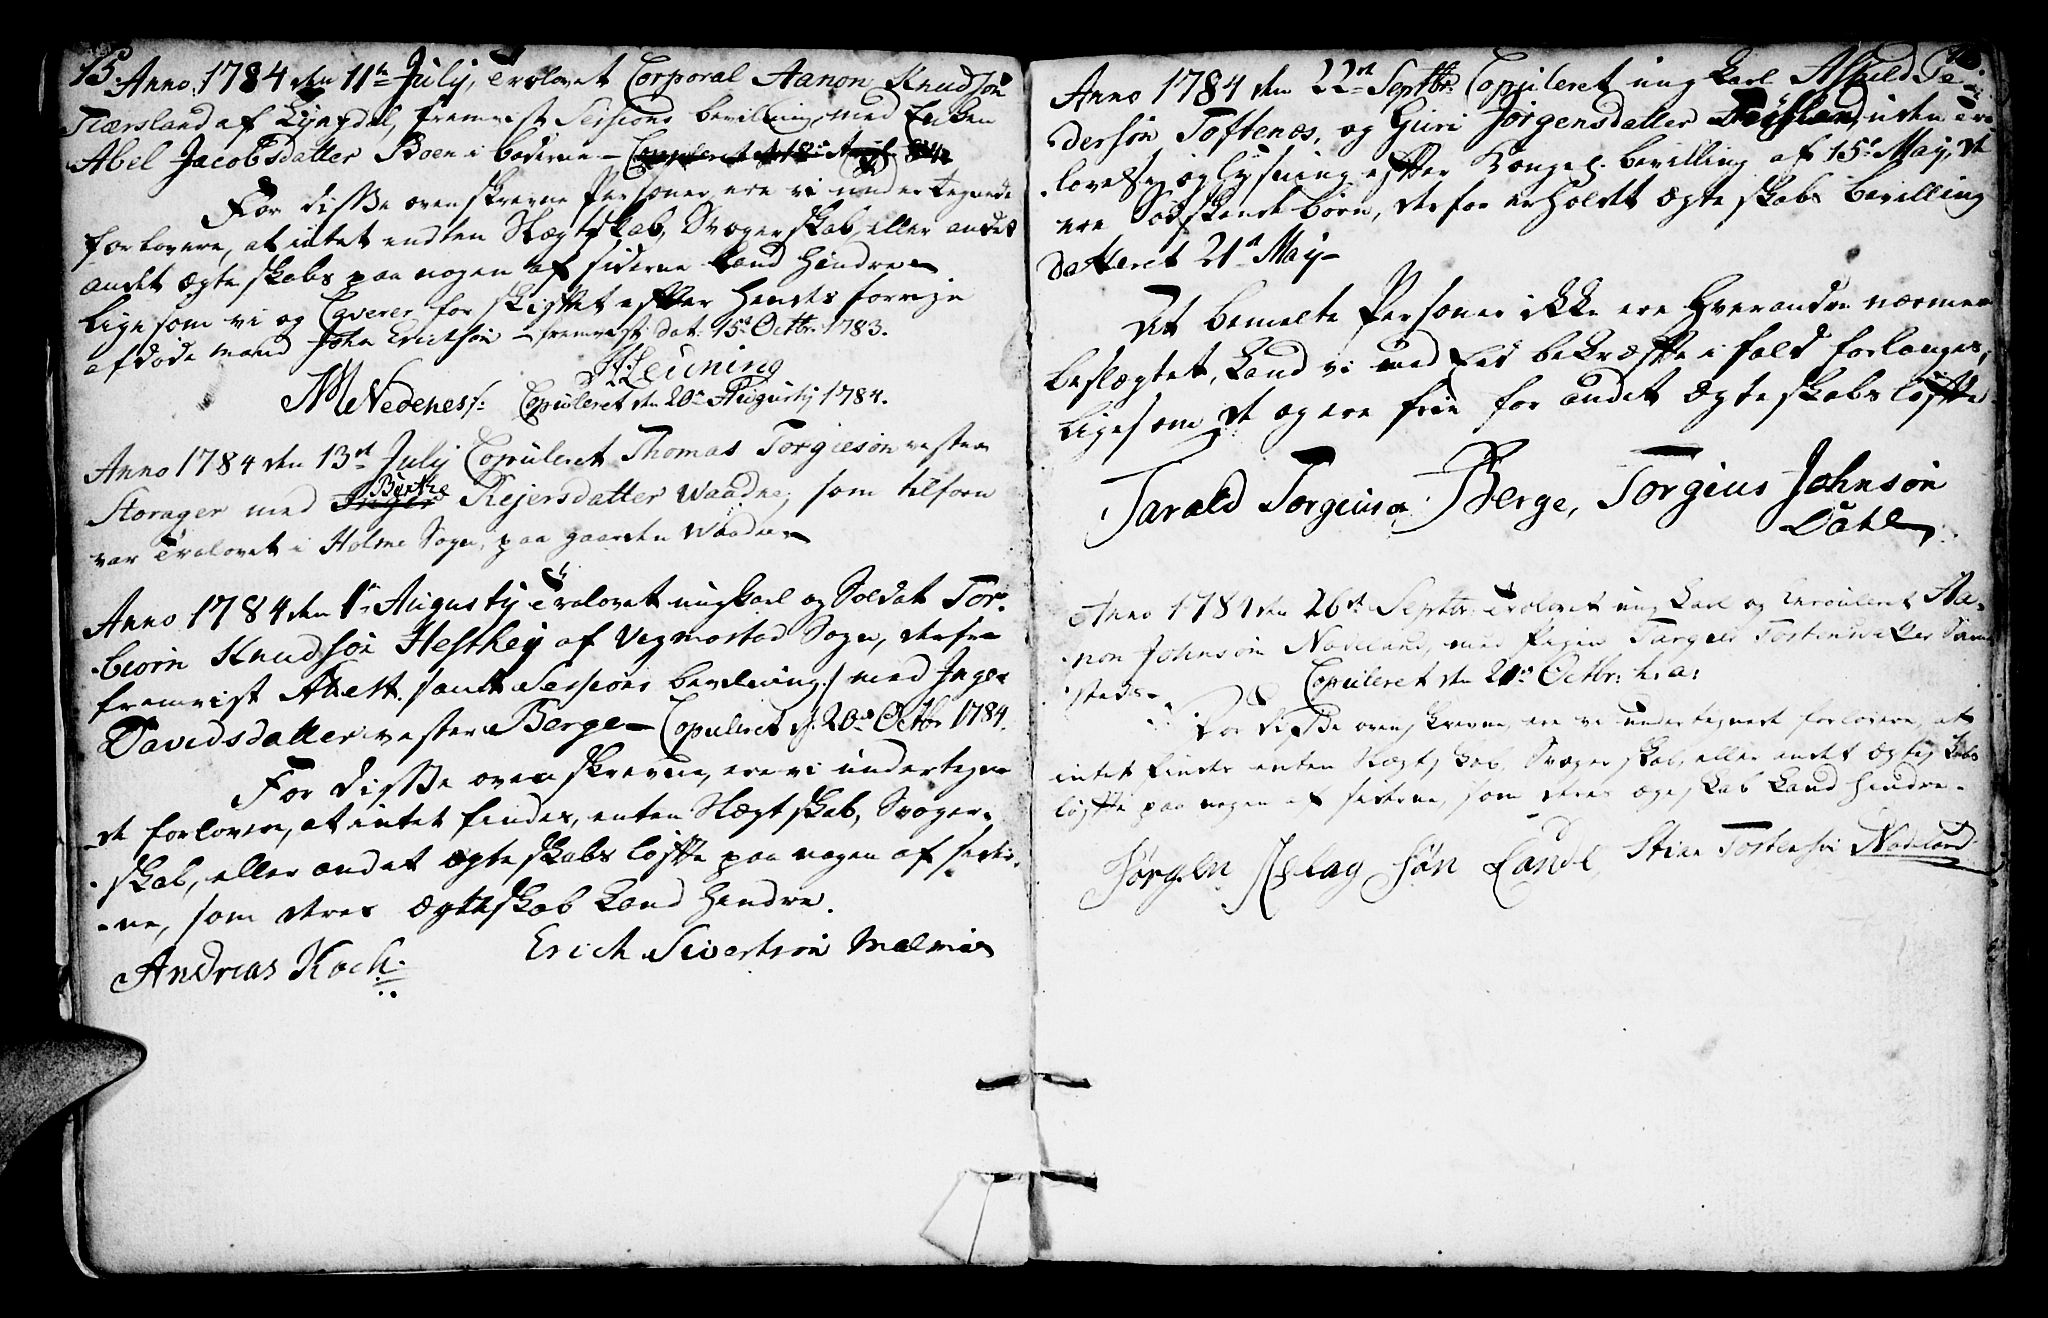 15.
Anno 1784 den 11te July, Trolovet Corporal Aanon Knudsøn
af Lyngdal, fremvist Sessions bevilning, med Enken
Abel Jacobsdatter Boen i boderne - Copuleret
For disse ovenskrevne Personer, ere vi undertegnede
forlovere, at intet endten Slægtskab, Svogerskab, eller andet
andet ægteskabs paa nogen af siderne kand hindre
ligesom vi og Caverer for skiftet efter hendes forrige
afdøde mand John Erichsøn - fremvist dat. 15de Octbr 1783.
H: Leuning
Nedenes: Copuleret den 20de Augusty 1784.
Anno 1784 den 13de July Copuleret Thomas Torgiesøn vester
Storager med Inger Birthe Rejersdatter Waadne, som tilforn
var Trolovet i Holme Sogn, paa gaarden Waadne
Anno 1784 den 1te Augusty Trolovet ungkarl og Soldat Tor-
biorn Knudsøn Hesthey af Vegmostad Sogn, derfra
fremvist Attest samt Sessions bevilning med Inger
Davidsdatter vester Berge - Copuleret d. 20de Octbr 1784.
For disse ovenskrevne, ere vi undertegne-
de forlovere, at intet findes, enten Slægtskab, Svoger-
skab, eller andet ægteskabs løfte paa nogen af sider-
ne, som deres ægteskab kand hindre.
Andreas Koch. Erich Sivertsøn
Anno 1784 den 22de Septbr: Copuleret ungkarl Askild Pe-
dersøn Toftenæs, og Guri Jørgensdatter uden Tro-
lovelse og lysning efter Kongel. bevilling af 15de May, de
ere Sødskende børn, derfor erholdet ægteskabs bevilling
datteret 21de May -
At bemelte Personer ikke ere hverandre nærmere
beslægtet, kand vi med Eed bekræfte i fald forlanges,
ligesom de og ere frie for andet ægteskabs løfte
Tarald Torgeiusøn Berge, Torgius Johnsøn
Dahl
Anno 1784 den 26de Septbr: Trolovet ungkarl og Enroulleret Aa-
non Johnsøn Nodeland, med Pigen Torgier Tostensdatter
steds - Copuleret den 21de Octbr: h: a:
For disse ovenskrevne, ere vi undertegnede forlovere, at
intet findes enten Slægtskab, Svogerskab, eller andet ægteskabs
løfte paa nogen af siderne, som deres ægeskab kand hindre.
Jørgen Aslag Søn Lande Stian Tostensøn Nodeland